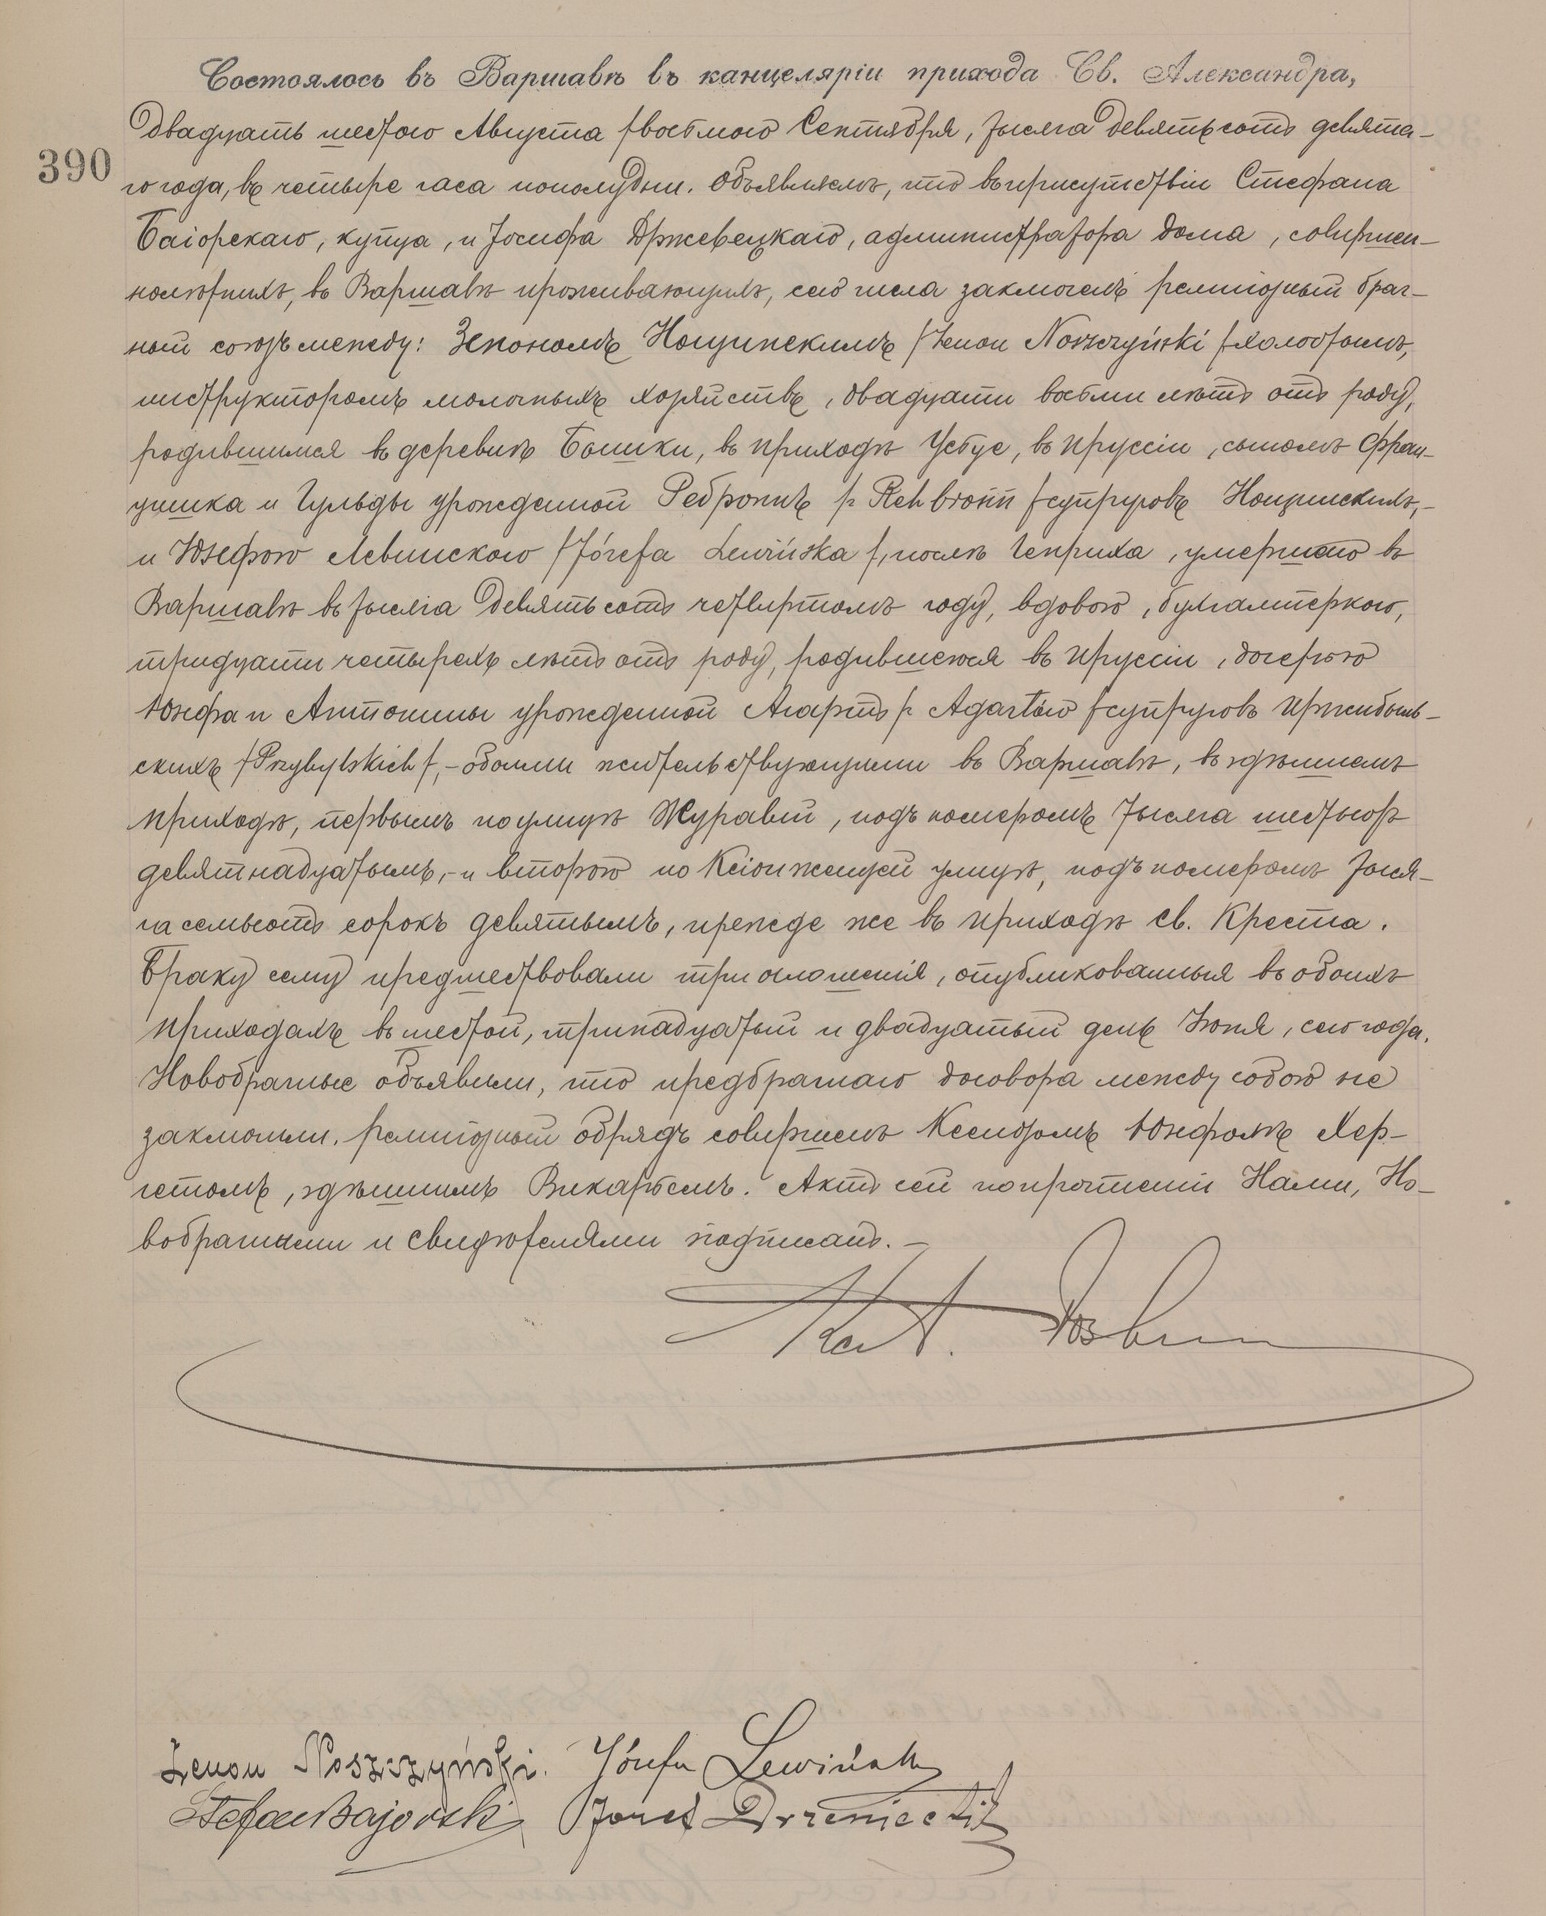 Состоялось въ Варшавѣ въ канцеляріи прихода Св. Александра,
двадцать шестого Августа /восьмого Сентября, тысяча девятьсотъ девята-
390
го года, въ четыре часа пополудни. Объявляемъ, что въ присутствіи Стефана
Баіорскаго, купца, и Іосифа Држевецкаго, администратора дома, совершен-
нолѣтнихъ, въ Варшавѣ проживающихъ, сего числа заключенъ религіозный брач-
ный союзъ между: Зенономъ Нощинскимъ /Zenon Noszczyński/ холостымъ,
инструкторомъ молочныхъ хозяйствъ, двадцати восьми лѣтъ отъ роду,
родившимся въ деревнѣ Бышки, въ приходѣ Усцье, въ Пруссіи, сыномъ Фран-
цишка и Гульды урожденной Реброннъ /z Rehbronn/ супруговъ Нощинскихъ,-
и Юзефою Левинскою /Józefa Lewińska/, послѣ Генриха, умершаго въ
Варшавѣ въ тысяча девятьсотъ четвертомъ году, вдовою, бухгалтеркою,
тридцати четырехъ лѣтъ отъ роду, родившеюся въ Пруссіи, дочерью
Юзефа и Антонины урожденной Агартъ /z Agartów/ супруговъ Пржибыль-
скихъ /Przybylskich/,- обоими жительствующими въ Варшавѣ, въ здѣшнемъ
приходѣ, первымъ по улицѣ Журавей, подъ номеромъ тысяча шестьсотъ
девятнадцатымъ,- и второю по Ксіонженцей улицѣ, подъ номеромъ тыся-
ча семьсотъ сорокъ девятымъ, прежде же въ приходѣ св. Креста.
Браку сему предшествовали три оглашенія, опубликованныя въ обоихъ
приходахъ въ шестой, тринадцатый и двадцатый день Іюня, сего года.
Новобрачные объявили, что предбрачнаго договора между собою не
заключили. Религіозный обрядъ совершенъ Ксендзомъ Юзефомъ Хер-
гетомъ, здѣшнимъ Викаріемъ. Актъ сей по прочтеніи Нами, Но-
вобрачными и свидѣтелями подписанъ.-
Zenon Noszczyński. Józefa Lewińska
Stefan Bajorski Józef Drzewiecki